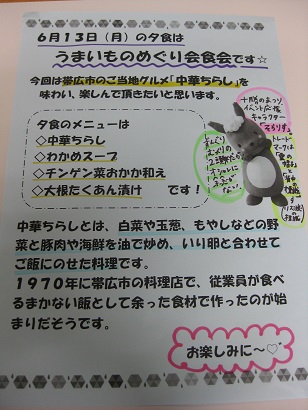 6月13日（月）の夕食は
うまいものめぐり会食会です☆
今回は帯広市のご当地グルメ「中華ちらし」を
味わい、楽しんで頂きたいと思います。
夕食のメニューは
◇中華ちらし
◇わかめスープ
◇チンゲン菜おかか和え
◇大根たくあん漬け　です！
十勝のまつり
イベント応援
キャラクター
トレード
マークは
中華ちらしとは、白菜や玉葱、もやしなどの野
菜と豚肉や海鮮を油で炒め、いり卵と合わせて
ご飯にのせた料理です。
1970年に帯広市の料理店で、従業員が食べ
るまかない飯として余った食材で作ったのが始
まりだそうです。
お楽しみに～♡